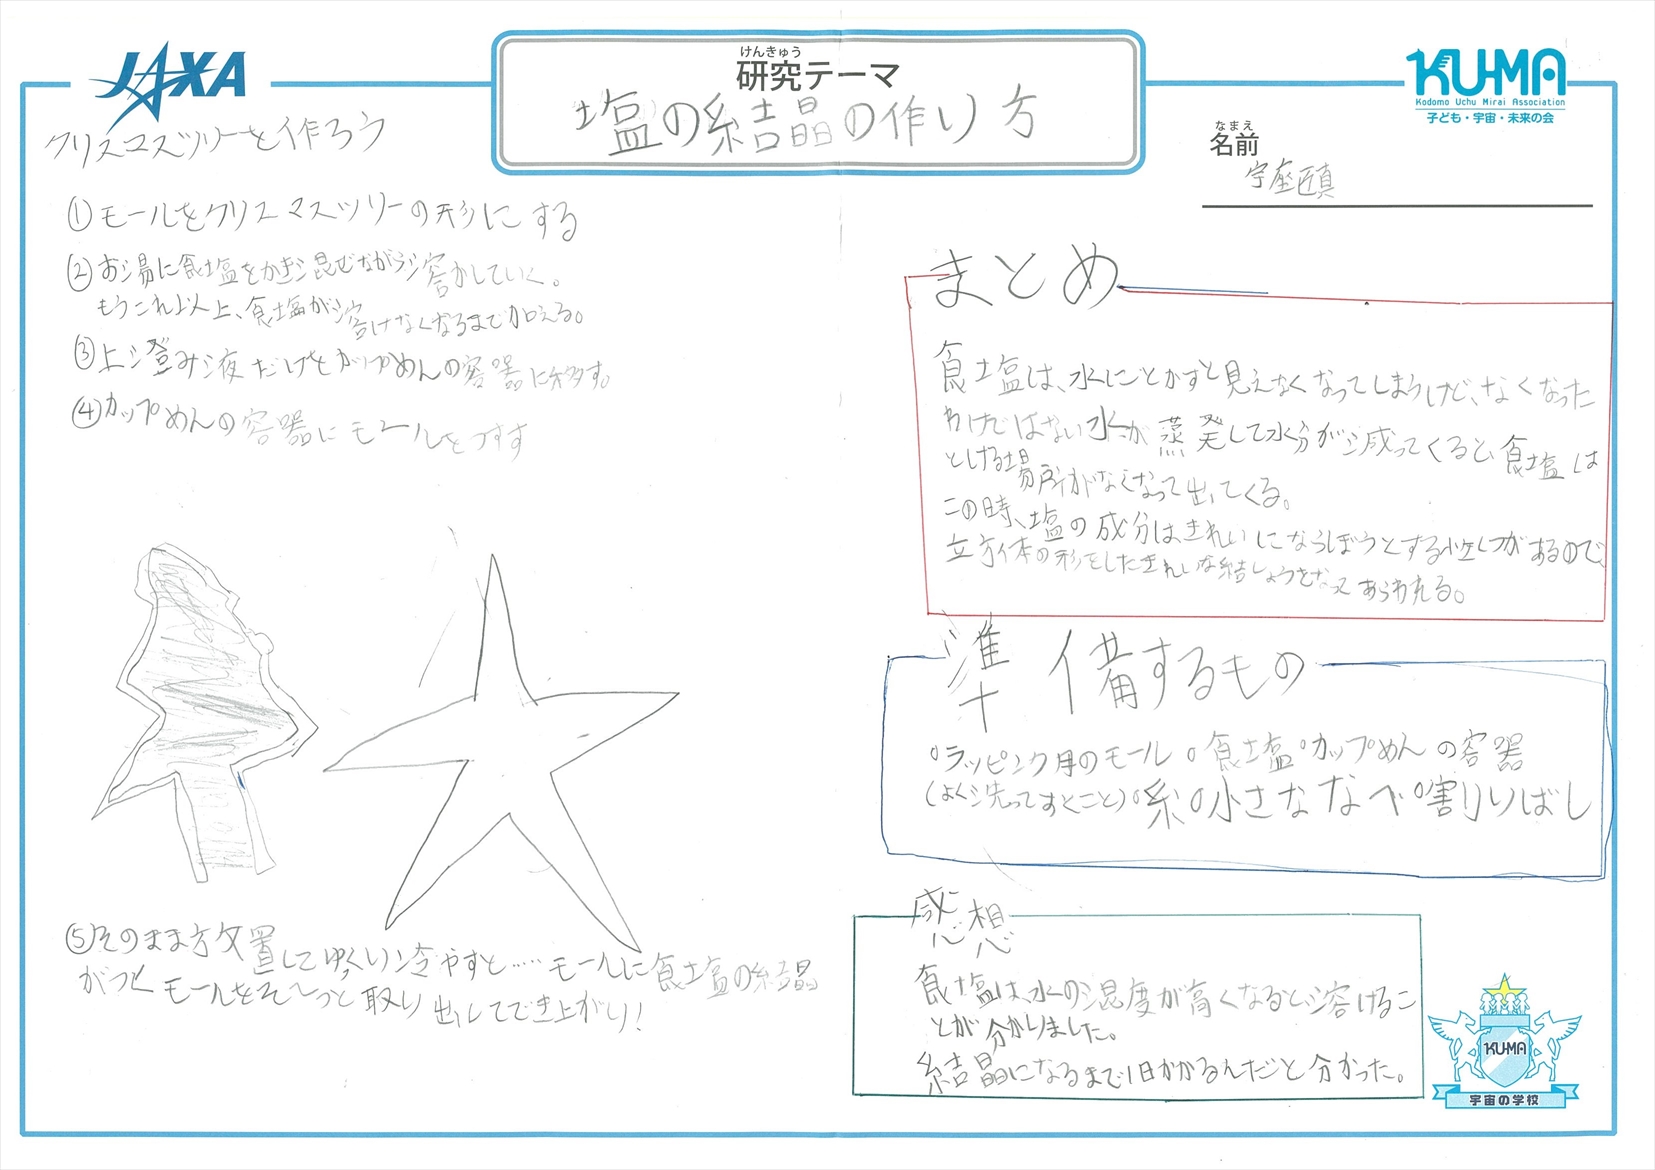 JAXA
けんきゅう
研究テーマ
塩の結晶の作り方
KU-MA
Kodomo Uchu Mirai Association
子ども・宇宙・未来の会
なまえ
名前
宇座匠真
クリスマスツリーを作ろう
①モールをクリスマスツリーの形にする
②お湯に食塩をかき混ぜながら溶かしていく。
もうこれ以上、食塩が溶けなくなるまで加える。
③上澄み液だけをカップめんの容器に移す。
④カップめんの容器にモールをつすす
⑤そのまま放置してゆっくり冷やすと……モールに食塩の結晶
がつくモールをそ〜っと取り出してでき上がり!
まとめ
食塩は、水にとかすと見えなくなってしまうけど、なくなった
わけではない水が蒸発して水分が減ってくると、食塩は
とける場所がなくなって出てくる。
この時、塩の成分はきれいにならぼうとする性しつがあるので、
立方体の形をしたきれいな結しょうとなってあらわれる。
準備するもの
°ラッピング用のモール °食塩 °カップめんの容器
(よく洗っておくこと) °糸 °小さななべ °割りばし
感想
食塩は、水の温度が高くなると溶けるこ
とが分かりました。
結晶になるまで1日かかるんだと分かった。
KU-MA
宇宙の学校